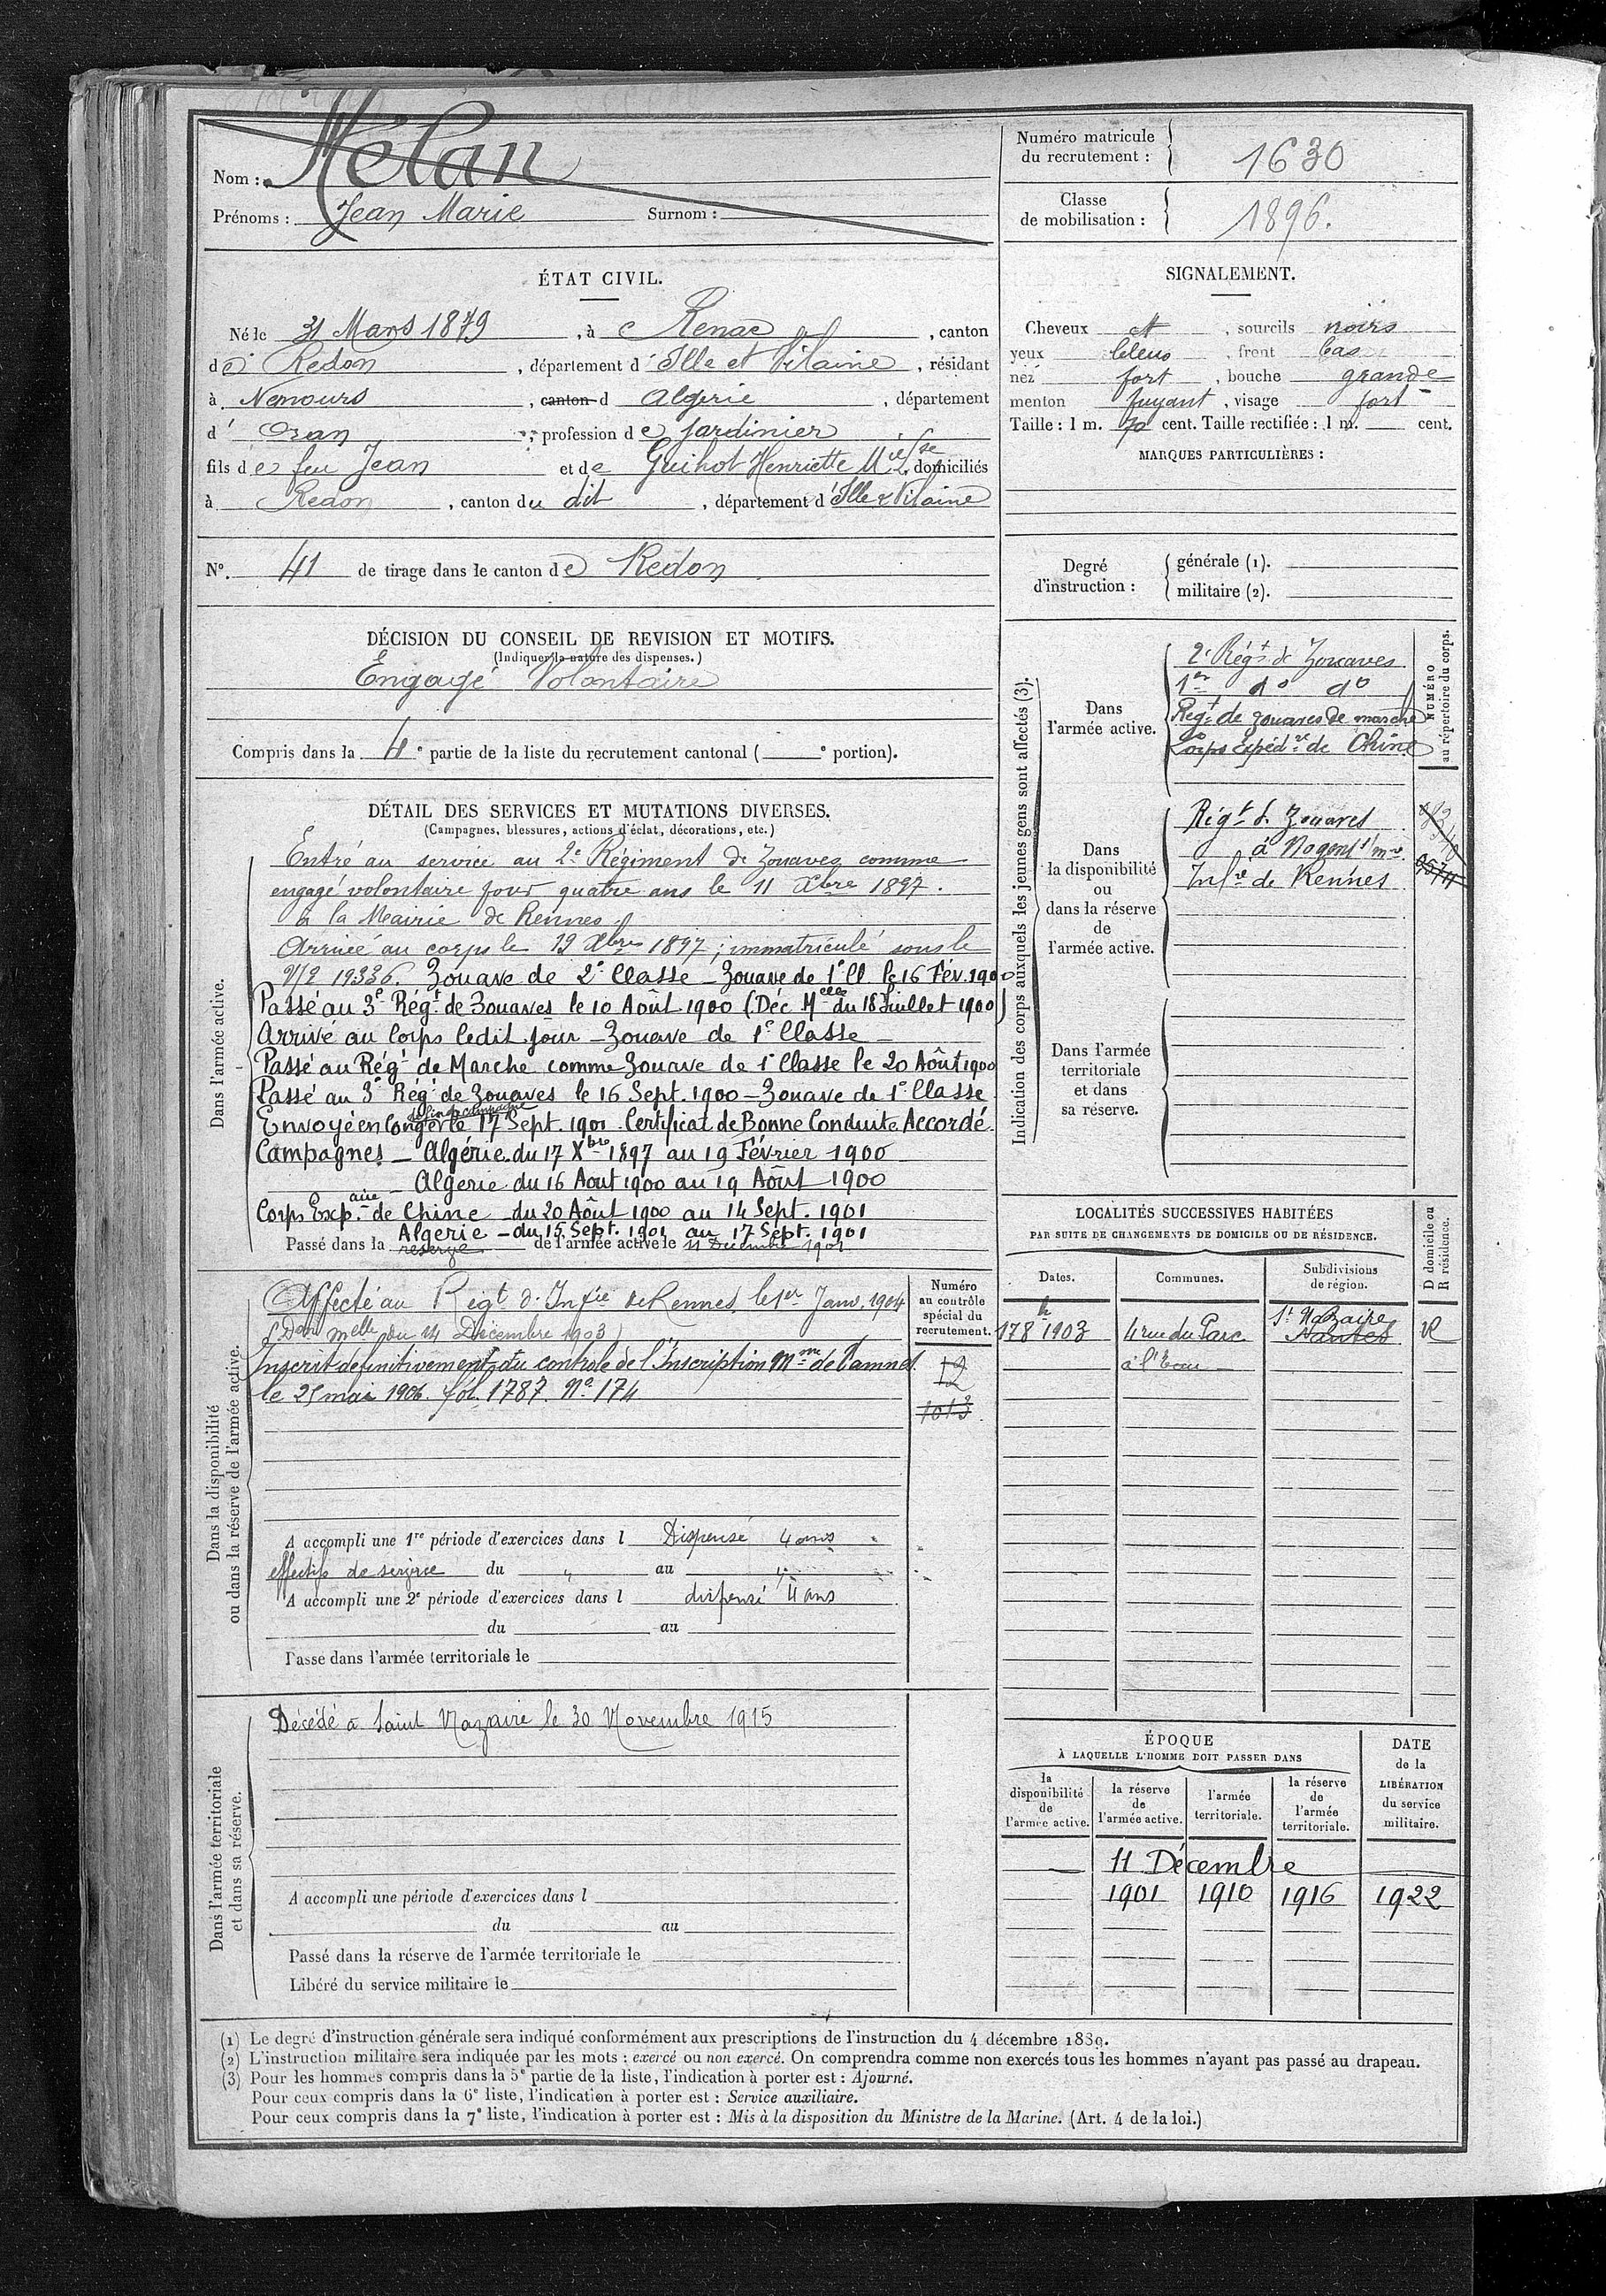 Nom : Mélan
Prénoms : Jean Marie Surnom :
Numéro matricule du recrutement : 1630
Classe de mobilisation : 1896.
ÉTAT CIVIL.
Né le 31 Mars 1879, à Renac, canton
de Redon, département d'Ille et Vilaine, résidant
à Nemours, canton d Algerie, département
d'Oran, profession de Jardinier
fils de feu Jean et de Guihot Henriette, domiciliés
à Redon, canton du dit, département d'Ille & Vilaine
N°. 41 de tirage dans le canton de Redon
SIGNALEMENT.
Cheveux, sourcils noirs
yeux bleus, front bas
nez fort, bouche grande
menton fuyant, visage fort
Taille : 1 m. 70 cent. Taille rectifiée : 1 m. cent.
MARQUES PARTICULIÈRES :
Degré d'instruction :
générale (1).
militaire (2).
DÉCISION DU CONSEIL DE REVISION ET MOTIFS.
(Indiquer la nature des dispenses.)
Engagé Volontaire
Compris dans la 4e partie de la liste du recrutement cantonal ( e portion).
DÉTAIL DES SERVICES ET MUTATIONS DIVERSES.
(Campagnes, blessures, actions d'éclat, décorations, etc.)
Dans l'armée active.
Entré au service au 2e Régiment de Zouaves comme
engagé volontaire pour quatre ans le 11 Xbre 1897.
à la Mairie de Rennes.
Arrivé au corps le 19 Xbre 1897; immatriculé sous le
n° 19336. Zouave de 2e Classe - Zouave de 1e Cl. le 16 Fév. 1900
Passé au 3e Régt de Zouaves le 10 Août 1900 (Déc. Melle du 18 Juillet 1900)
Arrivé au Corps ledit jour - Zouave de 1e Classe -
Passé au Régt de Marche comme Zouave de 1e Classe le 20 Août 1900
Passé au 3e Régt de Zouaves le 16 Sept. 1900 - Zouave de 1e Classe
Envoyé en Congé de fin de campagne le 17 Sept. 1901. Certificat de Bonne Conduite Accordé.
Campagnes - Algérie du 17 Xbre 1897 au 19 Février 1900
- Algérie du 16 Aout 1900 au 19 Août 1900
Corps Exp.aire de Chine - du 20 Août 1900 au 14 Sept. 1901
Algérie - du 15 Sept. 1901 au 17 Sept. 1901
Passé dans la réserve de l'armée active le 11 Décembre 1901
Indication des corps auxquels les jeunes gens sont affectés (3).
NUMÉRO au répertoire du corps.
Dans l'armée active.
2e Régt de Zouaves
1er do do
Régt de zouaves de marche
Corps Expédre de Chine
Dans la disponibilité ou dans la réserve de l'armée active.
Régt de Zouaves
à Nogent s/ mne
Infie de Rennes
Dans l'armée territoriale et dans sa réserve.
LOCALITÉS SUCCESSIVES HABITÉES
PAR SUITE DE CHANGEMENTS DE DOMICILE OU DE RÉSIDENCE.
Dates. Communes. Subdivisions de région. D domicile ou R résidence.
1903 4 rue du Parc St Nazaire Nantes R
à l'Eau
Dans la disponibilité ou dans la réserve de l'armée active.
Numéro au contrôle spécial du recrutement.
Affecté au Régt d'Infie de Rennes, le 1er Janv. 1904
(Don Melle du 14 Décembre 1903)
Inscrit définitivement du contrôle de l'Inscription Mme de Vannes
le 25 mai 1906. fol. 1787. N° 174
12
1013
A accompli une 1re période d'exercices dans l Dispensé 4 ans
effectifs de service du " au "
A accompli une 2e période d'exercices dans l dispensé 4 ans
du au
Passé dans l'armée territoriale le
Dans l'armée territoriale et dans sa réserve.
Décédé à Saint Nazaire le 30 Novembre 1915
A accompli une période d'exercices dans l
du au
Passé dans la réserve de l'armée territoriale le
Libéré du service militaire le
ÉPOQUE
À LAQUELLE L'HOMME DOIT PASSER DANS
DATE de la LIBÉRATION du service militaire.
la disponibilité de l'armée active. la réserve de l'armée active. l'armée territoriale. la réserve de l'armée territoriale.
11 Décembre
1901 1910 1916 1922
(1) Le degré d'instruction générale sera indiqué conformément aux prescriptions de l'instruction du 4 décembre 1889.
(2) L'instruction militaire sera indiquée par les mots : exercé ou non exercé. On comprendra comme non exercés tous les hommes n'ayant pas passé au drapeau.
(3) Pour les hommes compris dans la 5e partie de la liste, l'indication à porter est : Ajourné.
Pour ceux compris dans la 6e liste, l'indication à porter est : Service auxiliaire.
Pour ceux compris dans la 7e liste, l'indication à porter est : Mis à la disposition du Ministre de la Marine. (Art. 4 de la loi.)